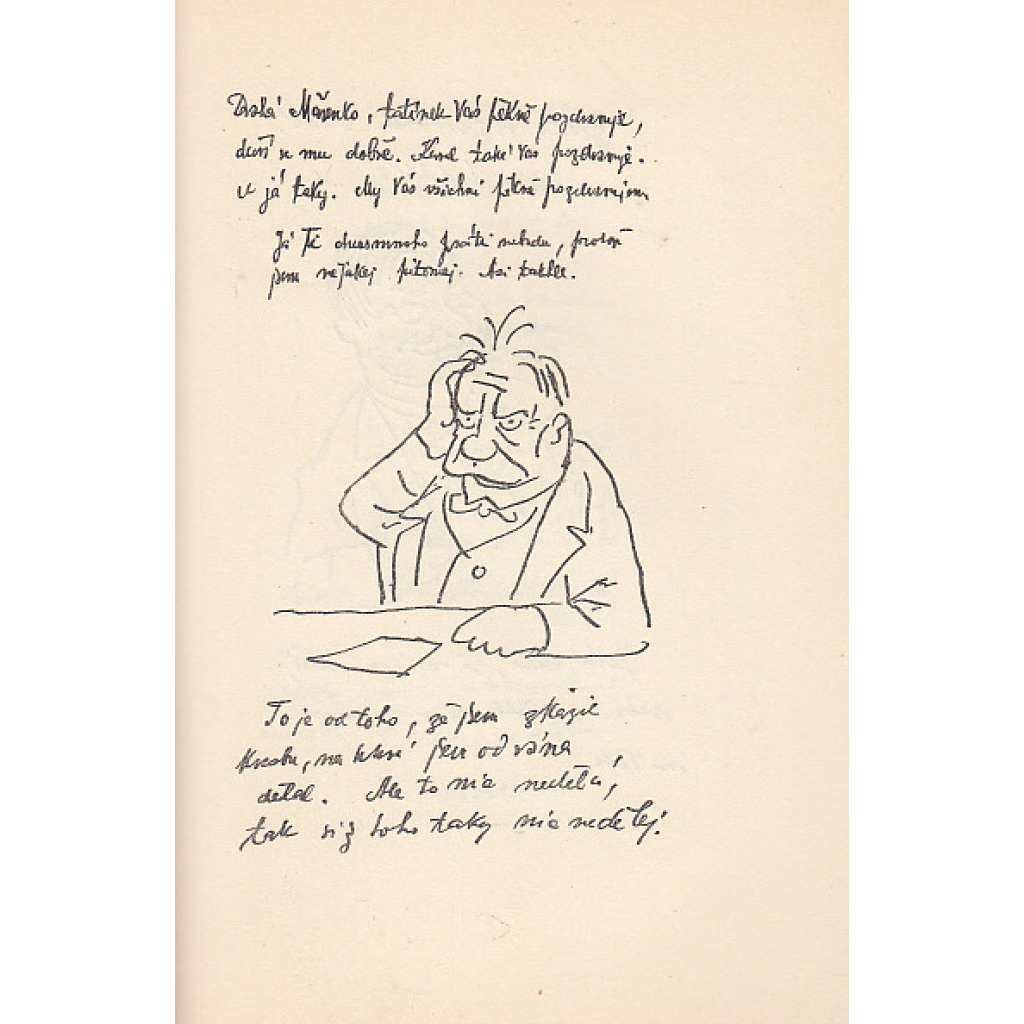 Drahá Mařenko, tatínek Vás pěkně pozdravuje,
daří se mu dobře. také Vás pozdravuje.
a já taky. My Vás všichni pěkně pozdravujem
Já Ti dnes mnoho psáti nebudu, protož
jsem nejakej pitomej. Asi takhle.
To je od toho, že jsem zkazil
kresbu, na které jsem od rána
dělal. Ale to nic nedělá,
tak si z toho taky nic nedělej.